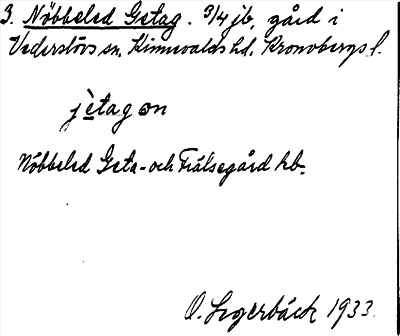 3. Nöbbeled Getag. 3/4 jb, gård i
Vederslövs sn. Kinnevalds hd. Kronobergs l.
jètagọn
Nöbbeled Geta- och Frälsegård hb.
O. 1933.